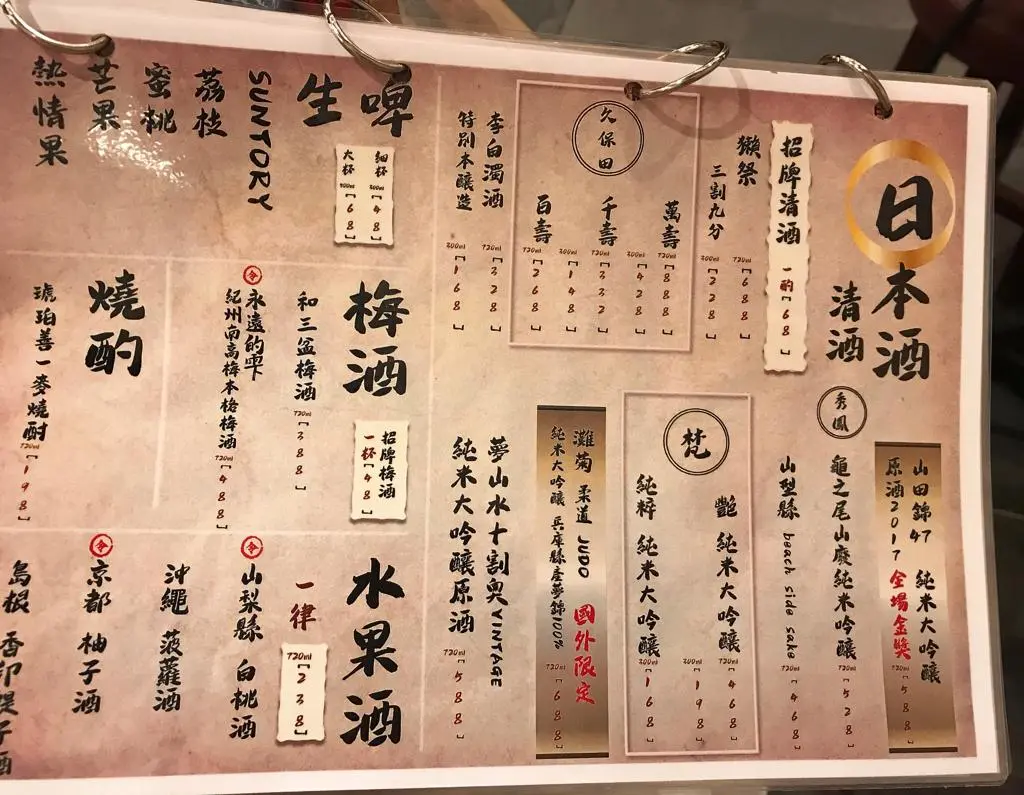 日本酒
清酒
招牌清酒 一酌[68]
獺祭 720ml[688]
三割九分 300ml[228]
久保田
萬壽 720ml[888]
300ml[428]
千壽 720ml[332]
300ml[148]
百壽 720ml[268]
李白濁酒 720ml[328]
特別本釀造 300ml[168]
山田錦47 純米大吟釀
原酒2017 全場金獎 720ml[588]
秀鳳
龜之尾山廢純米吟釀 720ml[528]
山型縣 beach side sake 720ml[468]
梵
艷 純米大吟釀 720ml[468]
300ml[198]
純梓 純米大吟釀 300ml[168]
灘菊 柔道 JUDO 國外限定
純米大吟釀 兵庫縣產夢錦100% 720ml[668]
夢山水十割奧VINTAGE
純米大吟釀原酒 720ml[588]
啤
生
細杯 300ml[48]
大杯 500ml[68]
SUNTORY
荔枝
蜜桃
芒果
熱情果
梅酒
招牌梅酒
一杯[48]
和三盆梅酒 720ml[388]
令
永遠的雫
紀州南高梅本格梅酒 720ml[488]
燒酌
琥珀善一麥燒酎 720ml[198]
水果酒
一律 720ml[238]
令
山梨縣 白桃酒
沖繩 菠蘿酒
令
京都 柚子酒
島根 香印提子酒